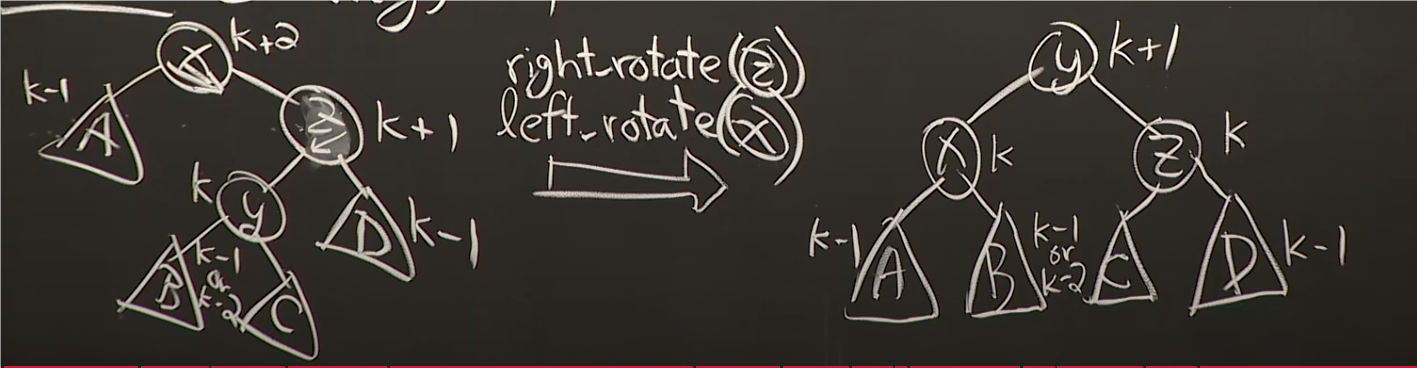 x k+2
k-1 A
z k+1
k y
D k-1
B k-1 or k-2 C
right-rotate(z)
left-rotate(x)
y k+1
x k
z k
k-1 A
B k-1 or k-2 C
D k-1